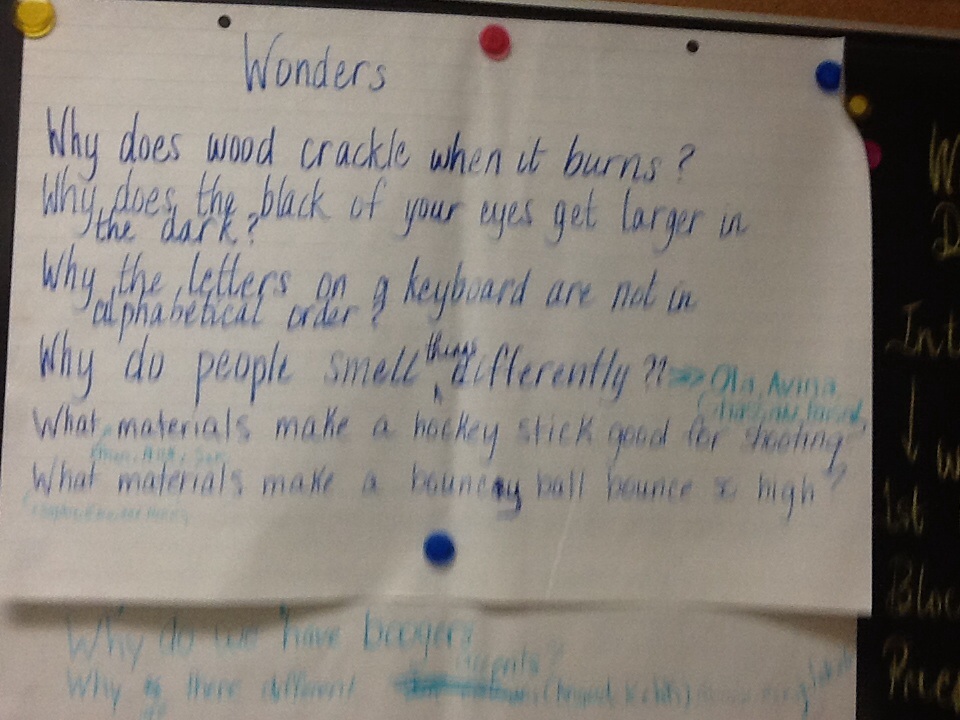 Wonders
Why does wood crackle when it burns?
Why does the black of your eyes get larger in
the dark?
Why the letters on a keyboard are not in
alphabetical order?
Why do people smell things differently??
Ola, Avina
What materials make a hockey stick good for shooting
What materials make a bouncy ball bounce so high?
Why do we have boogers
Why is there different
W
D
Int
↓ W
1st
Bloc